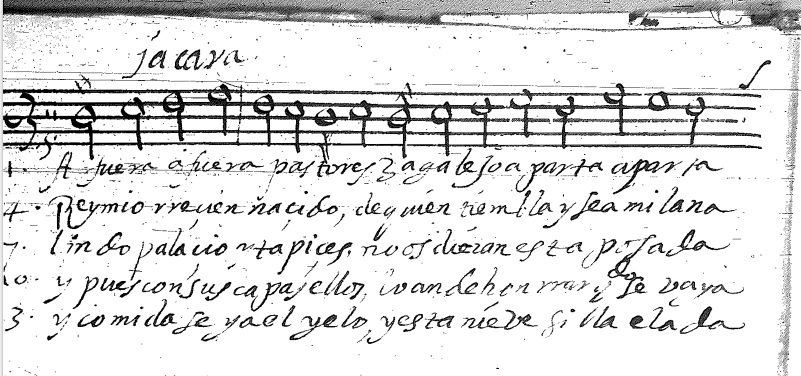 jacara
1. A fuera a fuera pastores Zagalejo a parta aparta
4. Rey mio rrecien nacido, de quien tiembla y sea milana
7. lindo palacio y tapices, no os dieran esta posada
10. y pues con sus capas ellos, an de honrrar se vaya
3. y comida se ya el yelo, y esta nieve elada